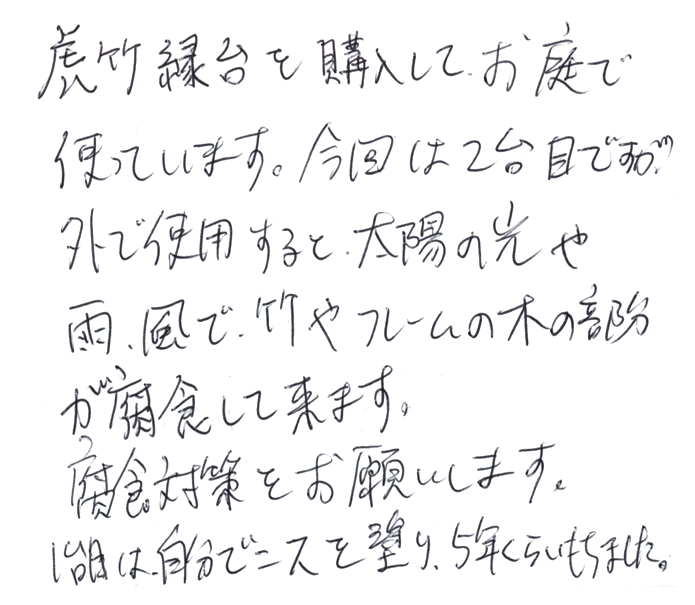 虎竹縁台を購入して、お庭で
使っています。今回は2台目ですが、
外で使用すると、太陽の光や
雨、風で、竹やフレームの木の部分
が腐食して来ます。
腐食対策をお願いします。
1台目は、自分でニスを塗り、5年くらいもちました。